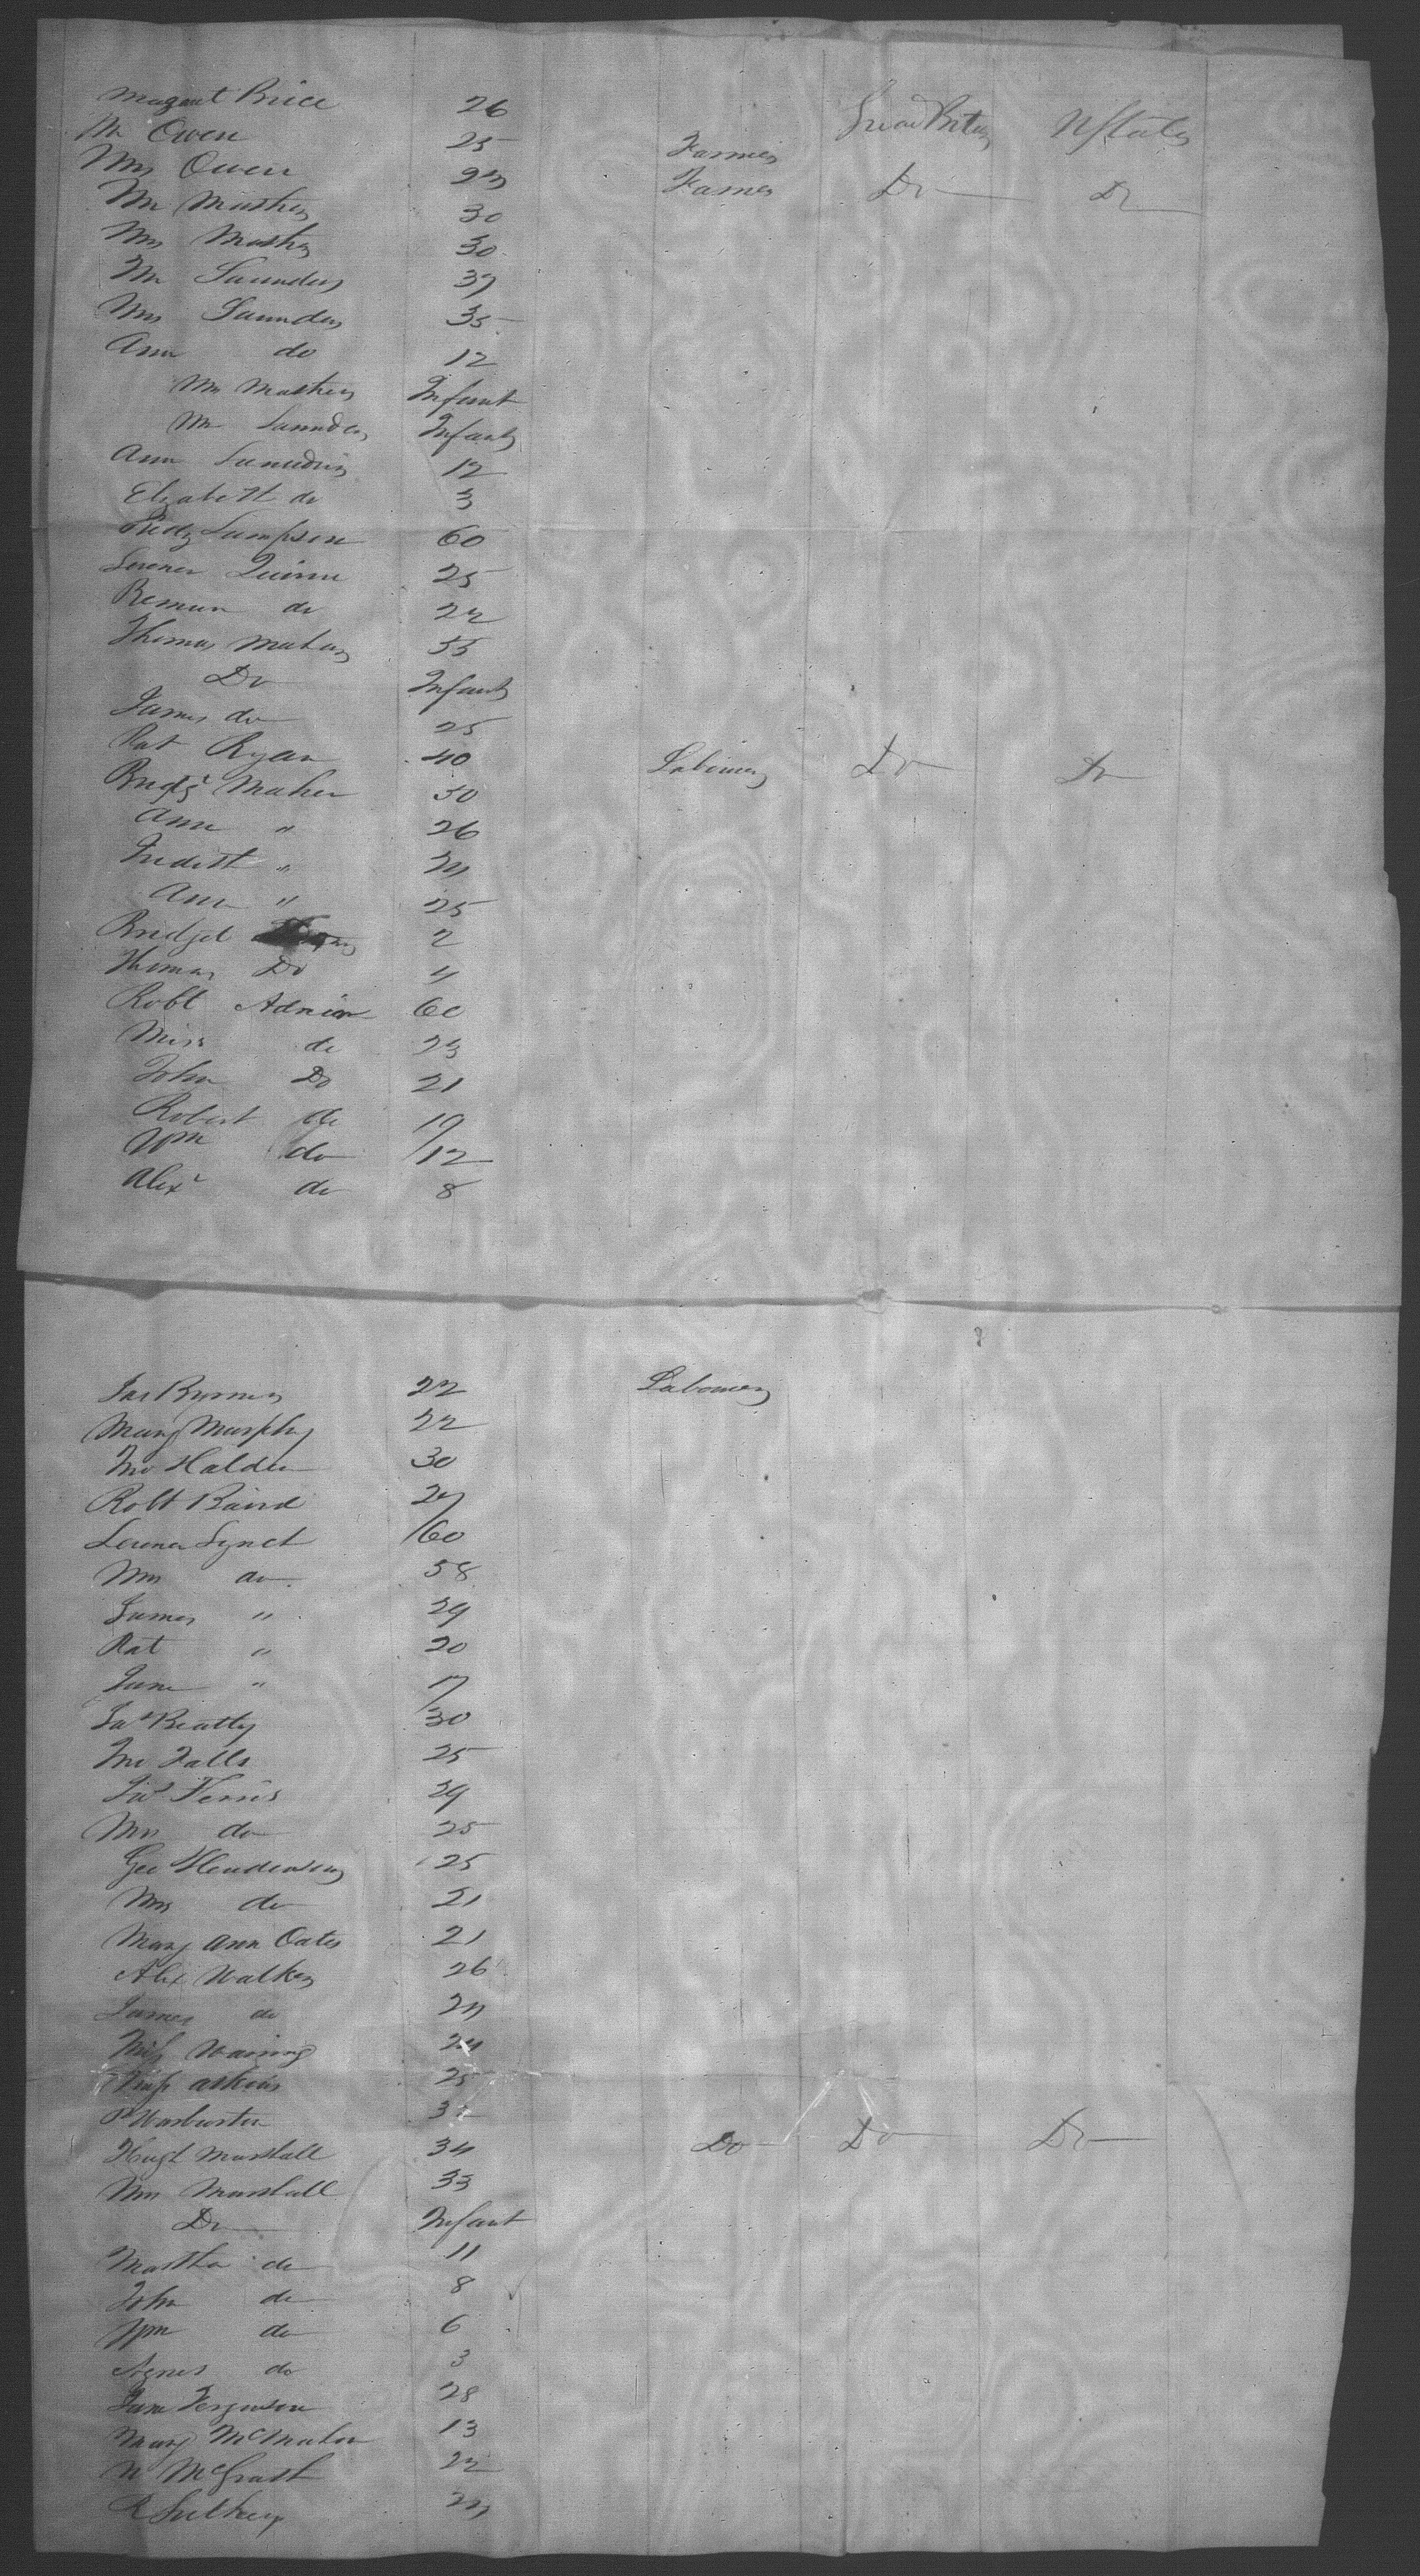 Magaret Price 26 Great Britain U States
Mr Owen 25 Farmer
Mrs Owen 23 Farmer Do Do
Mr Mathews 30
Mrs Mathews 30
Mr Saunders 37
Mrs Saunders 35
Ann do 12
Mrs Mathews Infant
Mr Saunders Infant
Ann Saunders 12
Elizabeth do 3
Sampson 60
Quinn 25
do 22
Thomas 55
Do Infant
James do 25
Pat Ryan 40 Labourer Do Do
Bridgt Maher 30
Ann " 26
Judith " 24
Ann " 25
Bridget 2
Thomas Do 4
Robt Adrian 60
Miss do 23
John Do 21
Robert do 19
Wm do 12
Alexr do 8
Jas 22 Labourer
Mary Murphy 22
Jno Halden 30
Robt Baird 27
Lynch 60
Mrs do 58
James " 29
Pat " 20
Jane " 17
Jas Beatty 30
Jno Falls 25
Jas Ferris 29
Mrs do 25
Geo Henderson 25
Mrs do 21
Mary Ann Oates 21
Alex Walker 26
James do 24
Miss Waring 24
Miss Askins 25
P Warburton
Hugh Marshall 34 Do Do Do
Mrs Marshall 33
Do Infant
Martha do 11
John do 8
Wm do 6
Agnes do 3
Jane Ferguson 28
Mary McMahon 13
McGrath 22